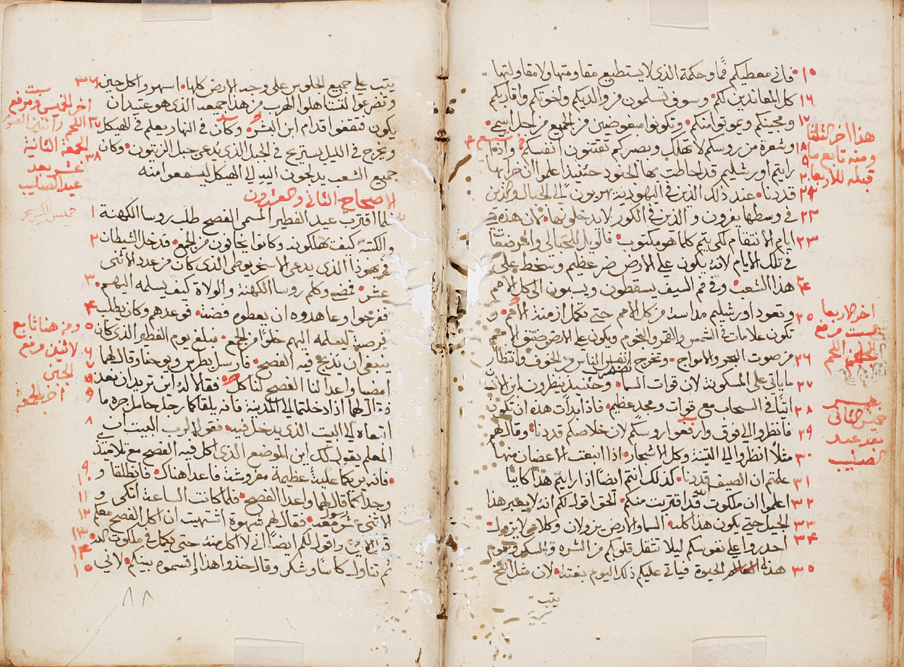 ١٥ فاني معطيكم فما وحكمة الذي لا يستطيع مقاومتها ولا مقاولتها
١٦ كل المعاندين لكم وسوف تسلمون من والديكم واخوتكم واقاربكم
١٧ ومحبيكم وعوتوا منكم وتكونوا مبغوضين من الجميع من اجل اسمي
١٨ وشعرة من روسكم لا تهلك وبصبركم تقتنون انفسكم واذا
رايتم اورشليم قد احاطت بها الجنود حينيذ اعلموا ان خرابها
٢١ قد دنا عند ذلك الذين في اليهودية يهربون الى الجبال والذين
٢٢ في وسطها يفرون والذين في الكور لا يدخلونها لان هذه هي
٢٣ ايام الانتقام لكي يتم كلما هو مكتوب فالويل للحبالى والمرضعات
في تلك الايام لانه يكون على الارض ضر عظيم وسخط على
٢٤ هذا الشعب وفي فم السيف يسقطون ويسبون الى كل الامم
وتعود اورشليم مداسة من كل الامم حتى تكمل ازمنة الامم
٢٥ تكون علامات في الشمس والقمر والنجوم ويكون على الارض ضيق الامم
٢٦ من صوت البحر والامواج وتخرج انفس الناس من الخوف وانتظار
٢٧ ما ياتي على المسكونة لان قوات السما وحينيذ ينظرون ابن البشر
٢٨ اتيا في السحاب مع قوات ومجد عظيم فاذا بدات هذه ان تكون
٢٩ فانظروا الى فوق وارفعوا روسكم لان خلاصكم قد دنا وقال لهم
٣٠ مثلا انظروا الى التينة وكل الاشجار اذا اينعت الاغصان منها
٣١ علمتم ان الصيف قد دنا كذلك انتم ايضا اذا رايتم هذا كاينا
٣٢ اعلموا ان ملكوت الله قد اقتربت منكم الحق اقول لكم انه لا يعبر هذا
٣٣ الجيل حتى يكون هذا كله السما والارض يزولان وكلامي لا يزول
٣٤ احذروا على نفوسكم ليلا تثقل قلوبكم من الشره والسكر وهموم
٣٥ هذه الحيوة فياتي عليكم ذلك اليوم بغتة لان مثل الفخ
يثب
هذا اخر الثلثا
ومنه تابع
قبله للاربعا
اخر الاربعا
خميس الثاني
بعد عيد
الصليب
٣٦ يثب على جميع الجلوس على وجه الارض كلها اسهروا كل حين
وتضرعوا لتستاهلوا الهرب من هذا جميعه الذي هو عتيد ان
٣٧ يكون لتقفوا قدام ابن البشر وكان في النهار يعلم في الهيكل
٣٨ ويخرج في الليل يستريح في الجبل الذي يدعى جبل الزيتون وكان
جميع الشعب يدلجون اليه الى الهيكل ليسمعوا منه
الاصحاح الثاني والعشرون
١ فلما اقترب عيد الفطير المسمى الفصح طلب روسا الكهنة
٢ والكتبة كيف يهلكونه وكانوا يخافون من الجمع فدخل الشيطان
في يهوذا الذي يدعى الاسخريوطي الذي كان من عدد الاثني
٣ عشر فمضى وكلم روسا الكهنة والولاة كيف يسلمه اليهم
٤ ففرحوا وعاهدوه ان يعطوه فضة فوعدهم وكان يطلب
٥ فرصة ليسلمه اليهم خلوا من الجمع فبلغ يوم الفطير الذي كان
٦ ينبغي ان يذبح فيه الفصح فارسل بطرس ويوحنا وقال لهما
٧ امضيا واعدا لنا الفصح لناكل فقالا له اين تريد ان نعد
٨ فقال لهما اذا دخلتما الى المدينة فانه يلقاكما رجل حامل جرة ما
٩ اتبعاه الى البيت الذي يدخل فيه فقولا لرب البيت
المعلم يقول لك اين الموضع الذي اكل فيه الفصح مع تلاميذي
فانه يريكما علية عظيمة مفروشة فاعدا هناك فانطلقا و
وجدا كما قال لهما واعدا الفصح فلما كانت الساعة اتكى و
الاثني عشر معه فقال لهم شهوة اشتهيت ان اكل الفصح معكم
قبل فاني اقول لكم ايضا اني لا اكل منه حتى يكمل في ملكوت الله
ثم تناول كاسا وشكر وقال خذوا هذا اقتسموه بينكم لاني
سبت
اخر الخميس ومرفع
الجمعة الثانية
عشر بعد
عيد الصليب
ومن هنا تابع
لاثنين مرفع
الجبن
٨٨